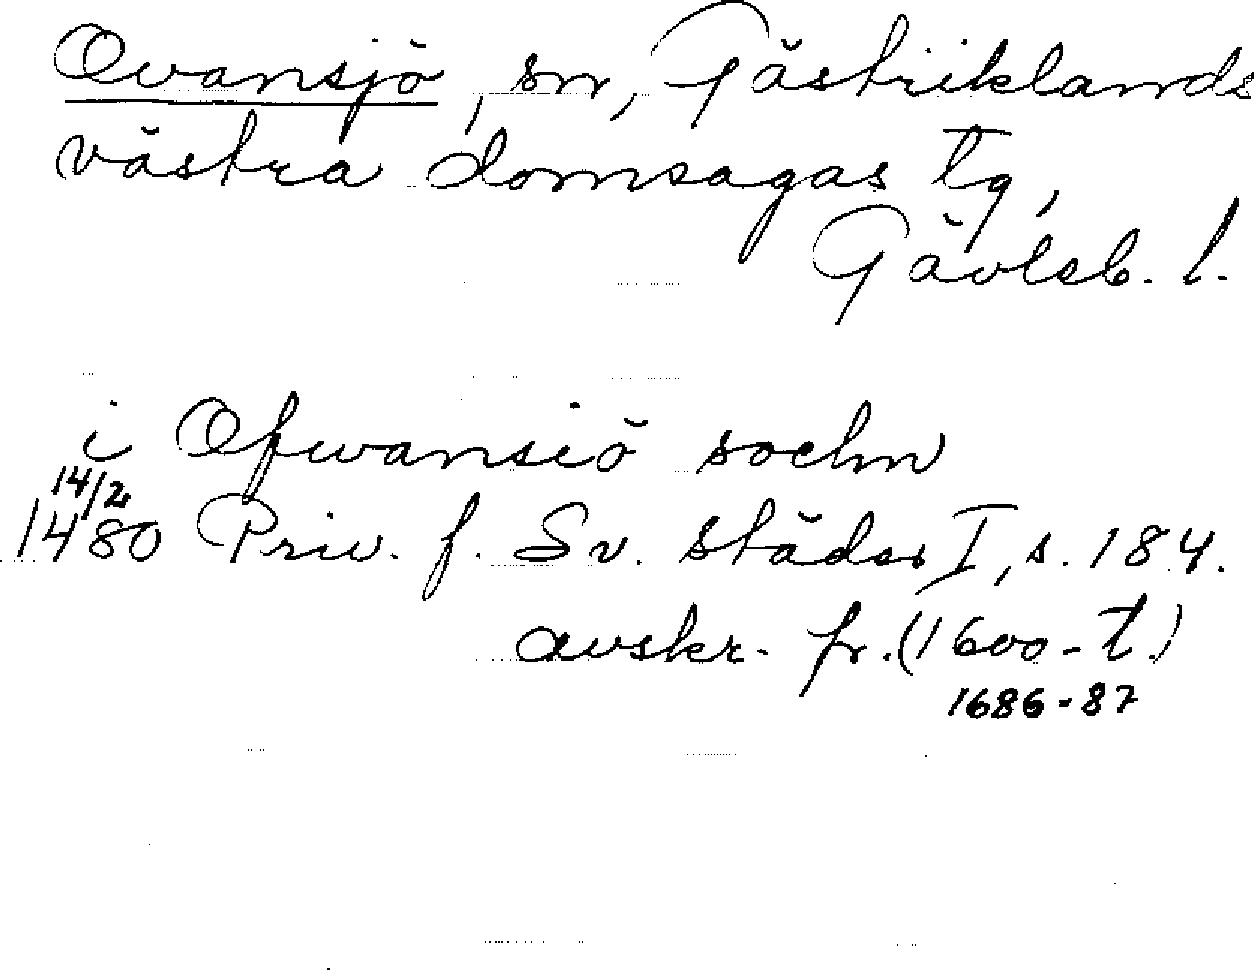 Ovansjö, sn, Gästriklands
västra domsagas tg,
Gävleb. l.
i Ofwansiö sochn
14/2
1480 Priv. f. Sv. städer I, s. 184.
avskr. fr. (1600-t.)
1686-87